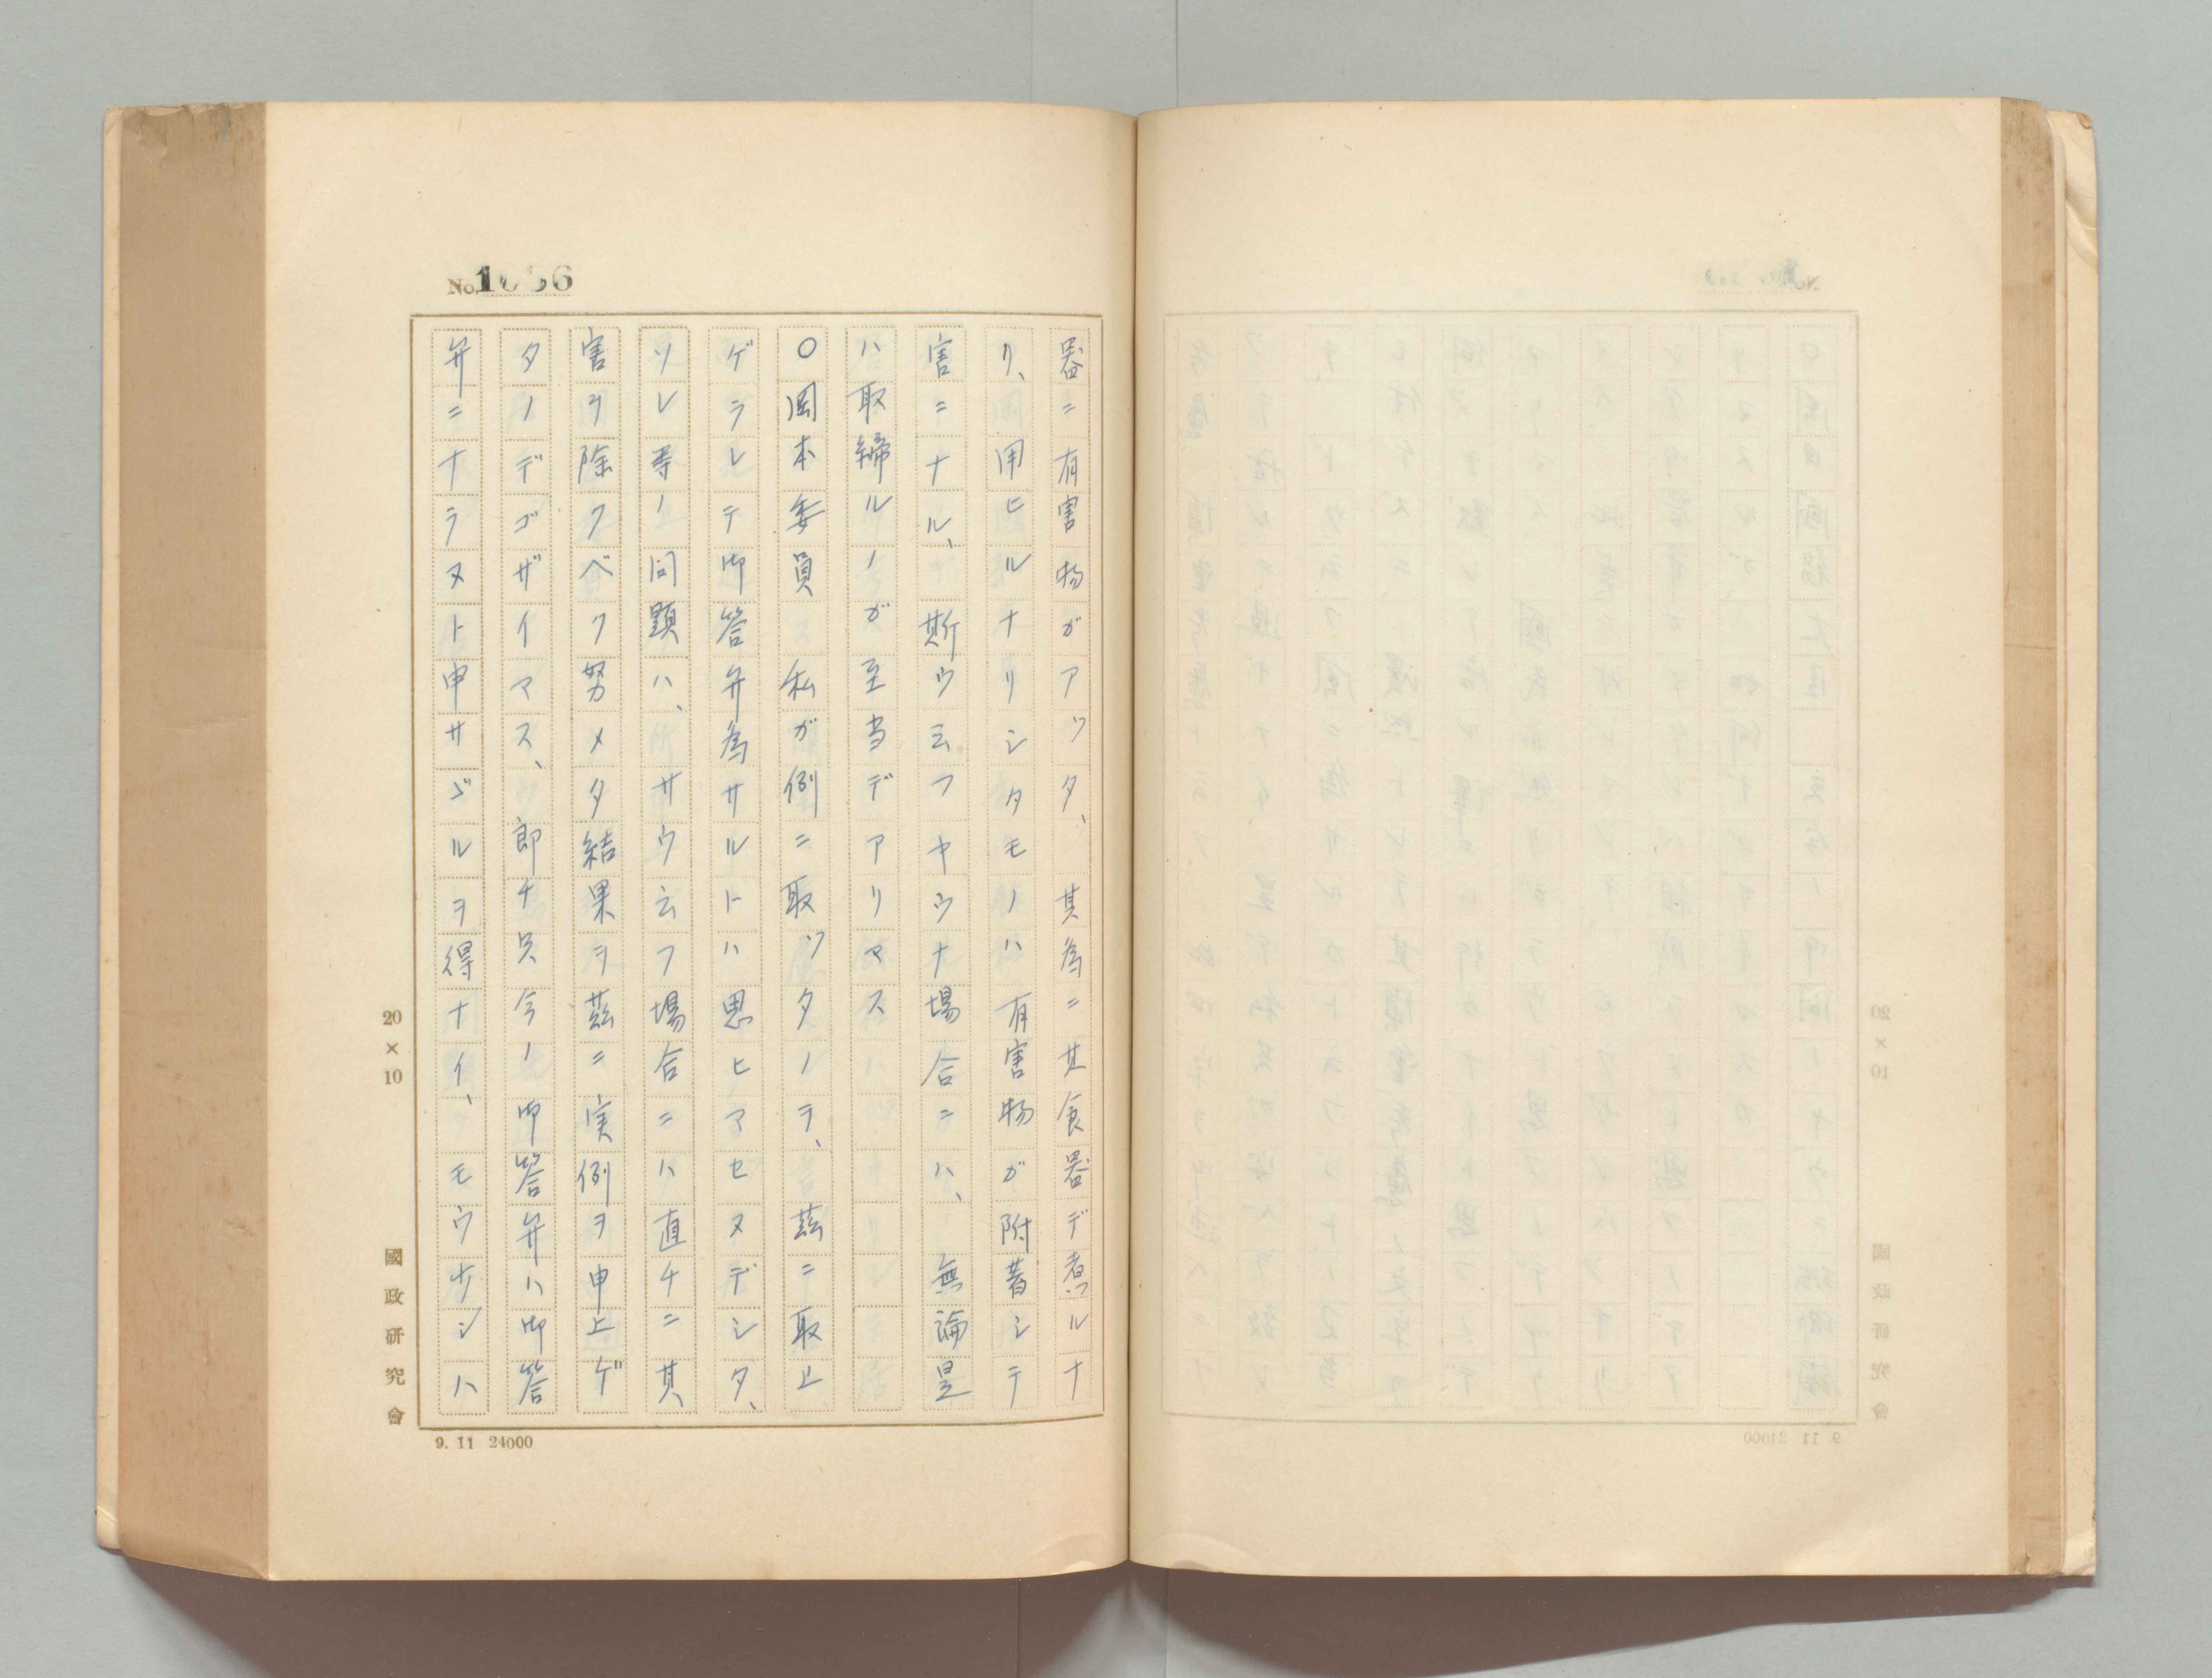 No. 1036
器ニ有害物ガアツタ、其為ニ其食器デ煮ルナ
リ、用ヒルナリシタモノハ有害物ガ附著シテ
害ニナル、斯ウ云フヤウナ場合ニハ、無論是
ハ取締ルノガ至当デアリマス
〇岡本委員 私ガ例ニ取ツタノヲ、茲ニ取上
ゲラレテ御答弁為サルトハ思ヒマセヌデシタ、
ソレ等ノ問題ハ、サウ云フ場合ニハ直チニ其
害ヲ除クベク努メタ結果ヲ茲ニ実例ヲ申上ゲ
タノデゴザイマス、即チ只今ノ御答弁ハ御答
弁ニナラヌト申サヾルヲ得ナイ、モウ少シハ
20×10
國政研究會
9. 11 24000